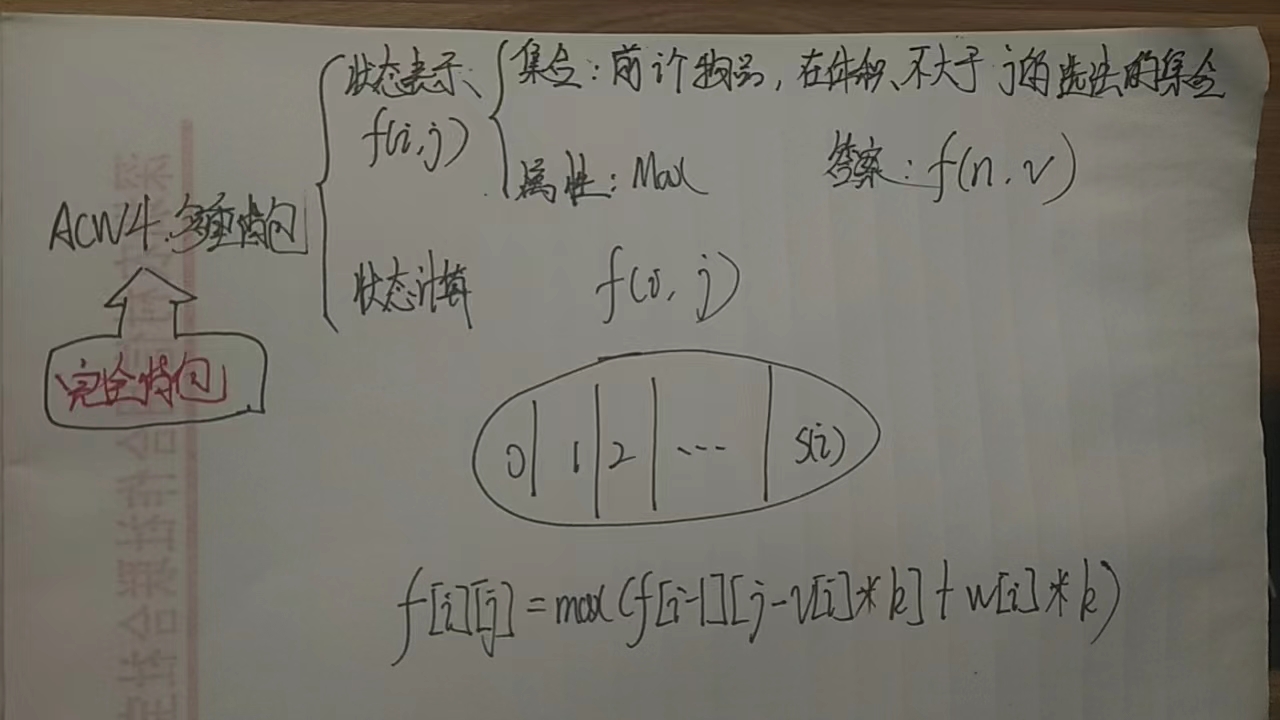 状态表示
f(i,j)
集合：前i个物品，在体积不大于j的选法的集合
属性：Max
答案：f(n,v)
ACW4.多重背包
状态计算
f(i,j)
完全背包
0 1 2 ... S(i)
f[i][j]=max(f[i-1][j-v[i]*k]+w[i]*k)